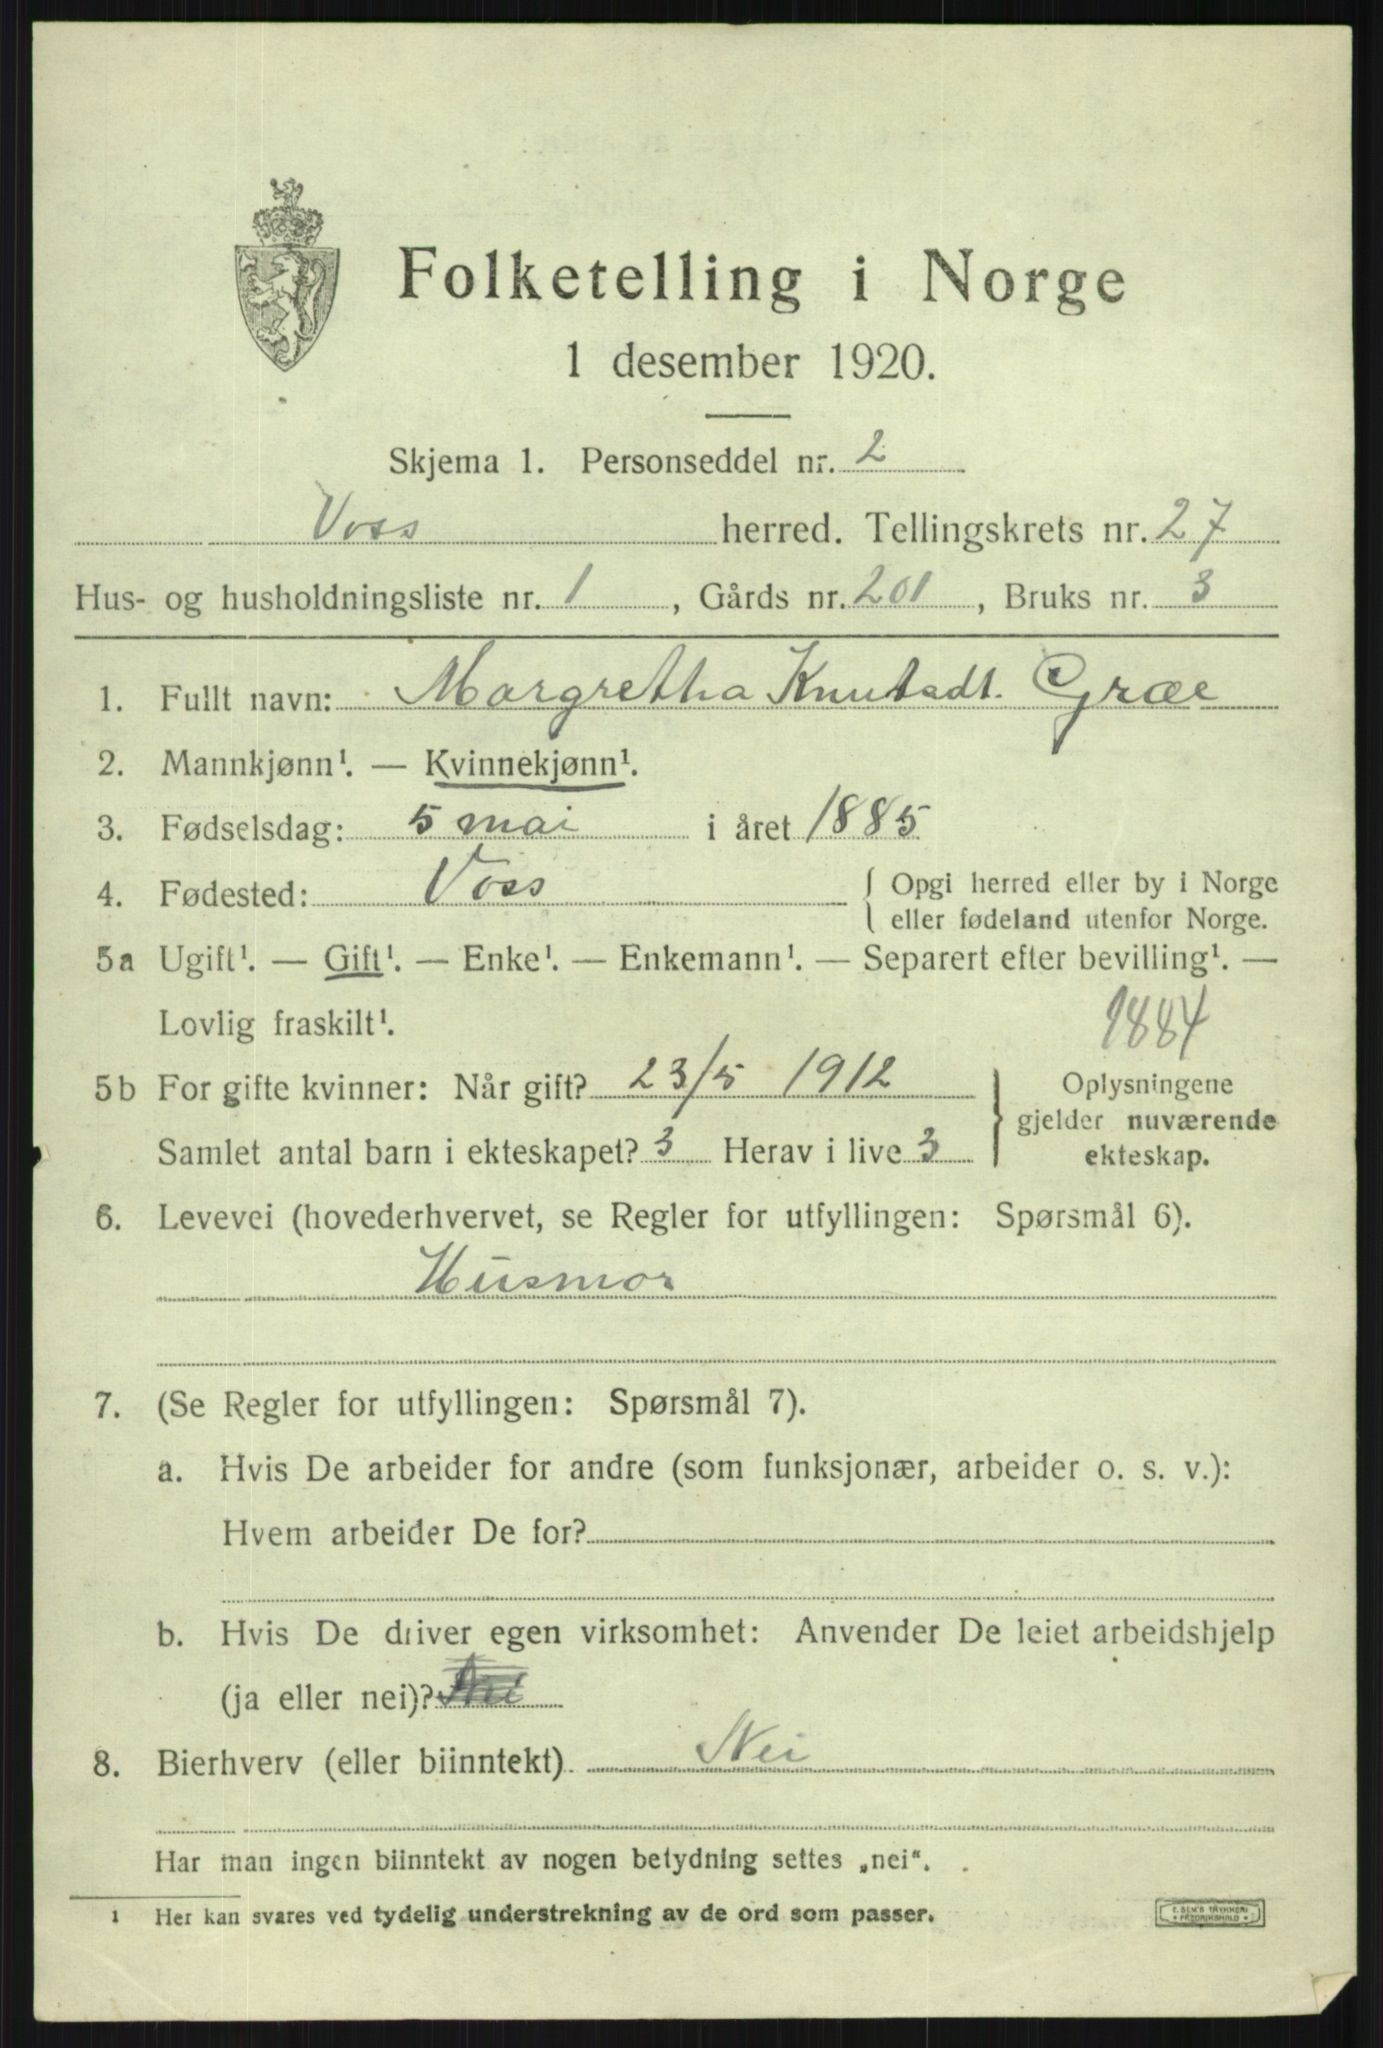 Folketelling i Norge
1 desember 1920.
Skjema 1. Personseddel nr. 2
Voss herred. Tellingskrets nr. 27
Hus- og husholdningsliste nr. 1, Gårds nr. 201, Bruks nr. 3
1. Fullt navn: Margretha Knutsdt. Græe
2. Mannkjønn¹. — Kvinnekjønn¹.
3. Fødselsdag: 5 mai i året 1885
4. Fødested: Voss { Opgi herred eller by i Norge
eller fødeland utenfor Norge.
5a Ugift¹. — Gift¹. — Enke¹. — Enkemann¹. — Separert efter bevilling¹. —
Lovlig fraskilt¹.
1884
5b For gifte kvinner: Når gift? 23/5 1912 } Oplysningene
gjelder nuværende
Samlet antal barn i ekteskapet? 3 Herav i live 3 ekteskap.
6. Levevei (hovederhvervet, se Regler for utfyllingen: Spørsmål 6).
Husmor
7. (Se Regler for utfyllingen: Spørsmål 7).
a. Hvis De arbeider for andre (som funksjonær, arbeider o. s. v.):
Hvem arbeider De for?
b. Hvis De driver egen virksomhet: Anvender De leiet arbeidshjelp
(ja eller nei)? Nei
8. Bierhverv (eller biinntekt) Nei
Har man ingen biinntekt av nogen betydning settes „nei".
1 Her kan svares ved tydelig understrekning av de ord som passer.